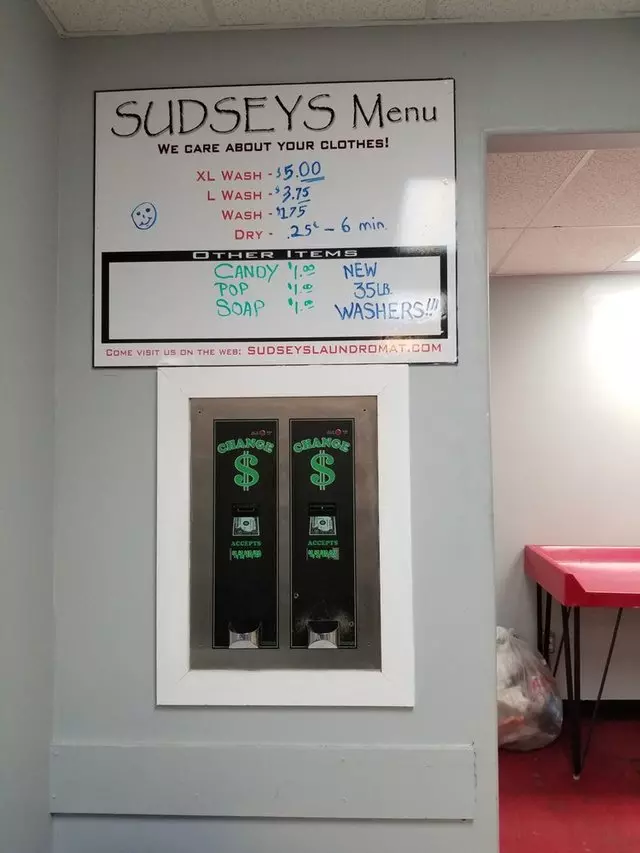 SUDSEYS Menu
WE CARE ABOUT YOUR CLOTHES!
XL WASH - $5.00
L WASH - $3.75
WASH - $1.75
DRY - .25¢ - 6 min.
OTHER ITEMS
CANDY $1.00 NEW
POP $1.00 35LB.
SOAP $1.00 WASHERS!!!
COME VISIT US ON THE WEB: SUDSEYSLAUNDROMAT.COM
CHANGE CHANGE
$ $
ACCEPTS ACCEPTS